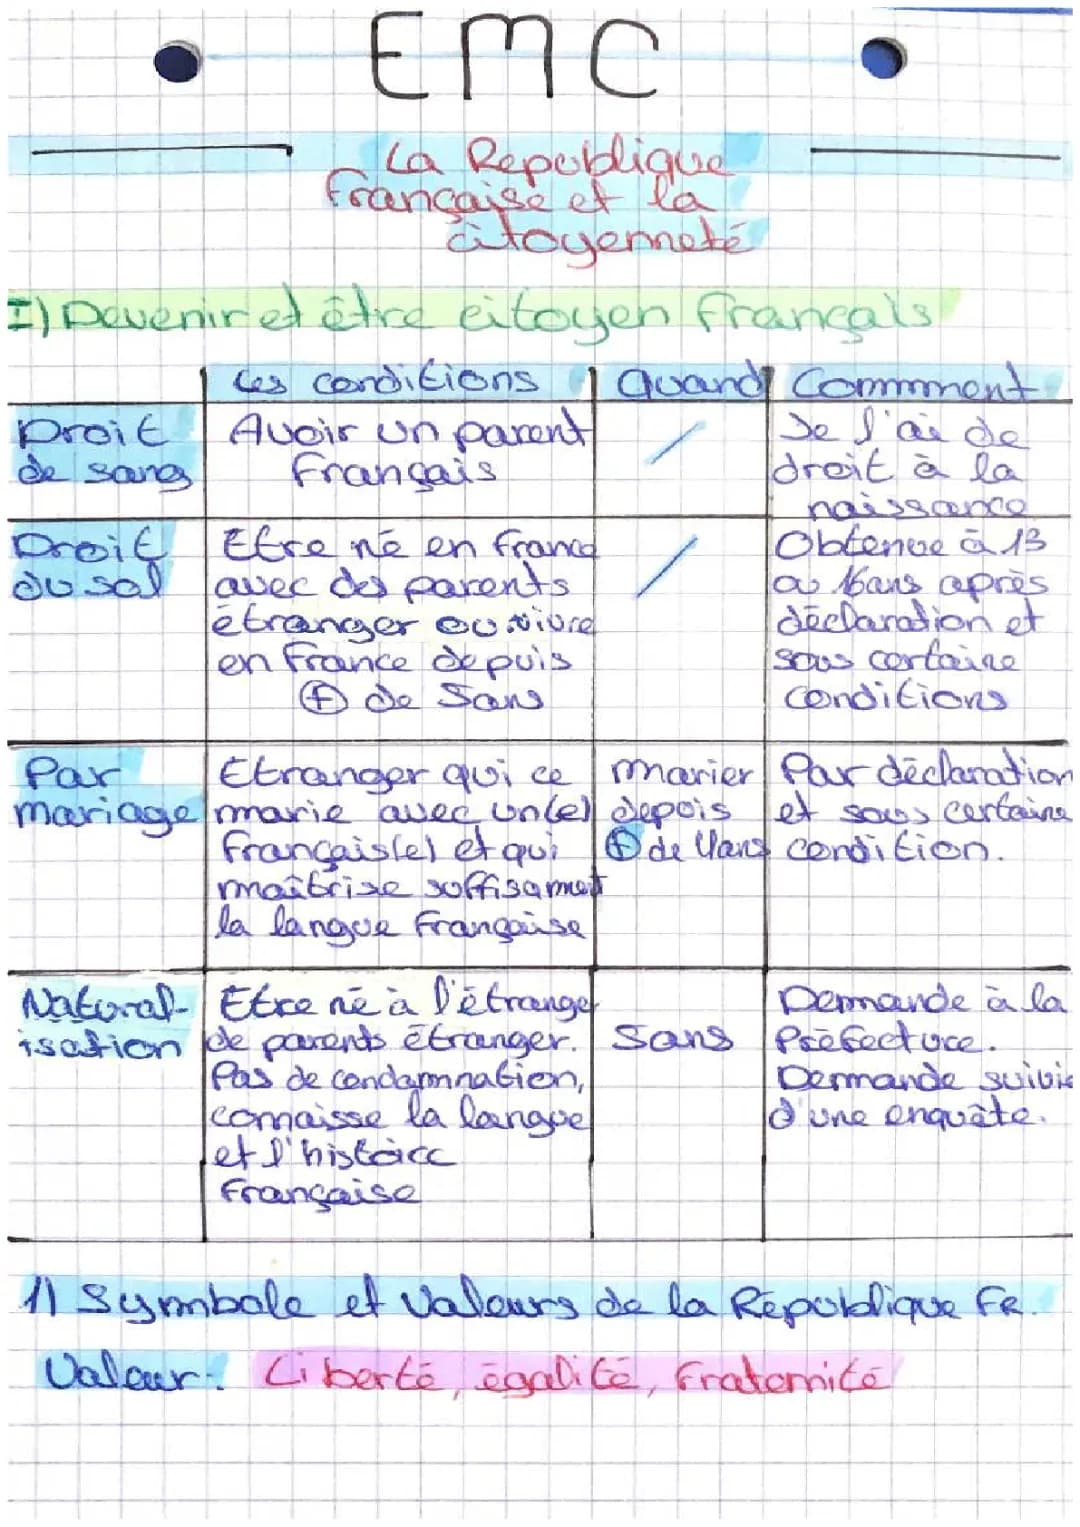 EMC
La Republique
française et la
citoyenneté
I) Devenir et être citoyen Français
Les conditions
Quand
Commment
Droit
de sang
Avoir un parent
Français
Je l'ai de
droit à la
naissance
Droit
du sol
Etre né en France
avec des parents
étranger ou vivre
en France depuis
+ de 5ans
Obtenue à 13
ou 16ans après
déclaration et
sous certaine
conditions
Par
mariage
Etranger qui ce
marie avec un(e)
Français(e) et qui
maîtrise suffisament
la langue Française
marier
depuis
+ de 4ans
Par déclaration
et sous certaine
condition.
Natural-
isation
Etre né à l'étranger
de parents étranger.
Pas de condamnation,
connaisse la langue
et l'histoire
Française
5ans
Demande à la
Préfecture.
Demande suivie
d'une enquête.
1) Symbole et Valeurs de la République FR.
Valeur: Liberté, égalité, Fraternité